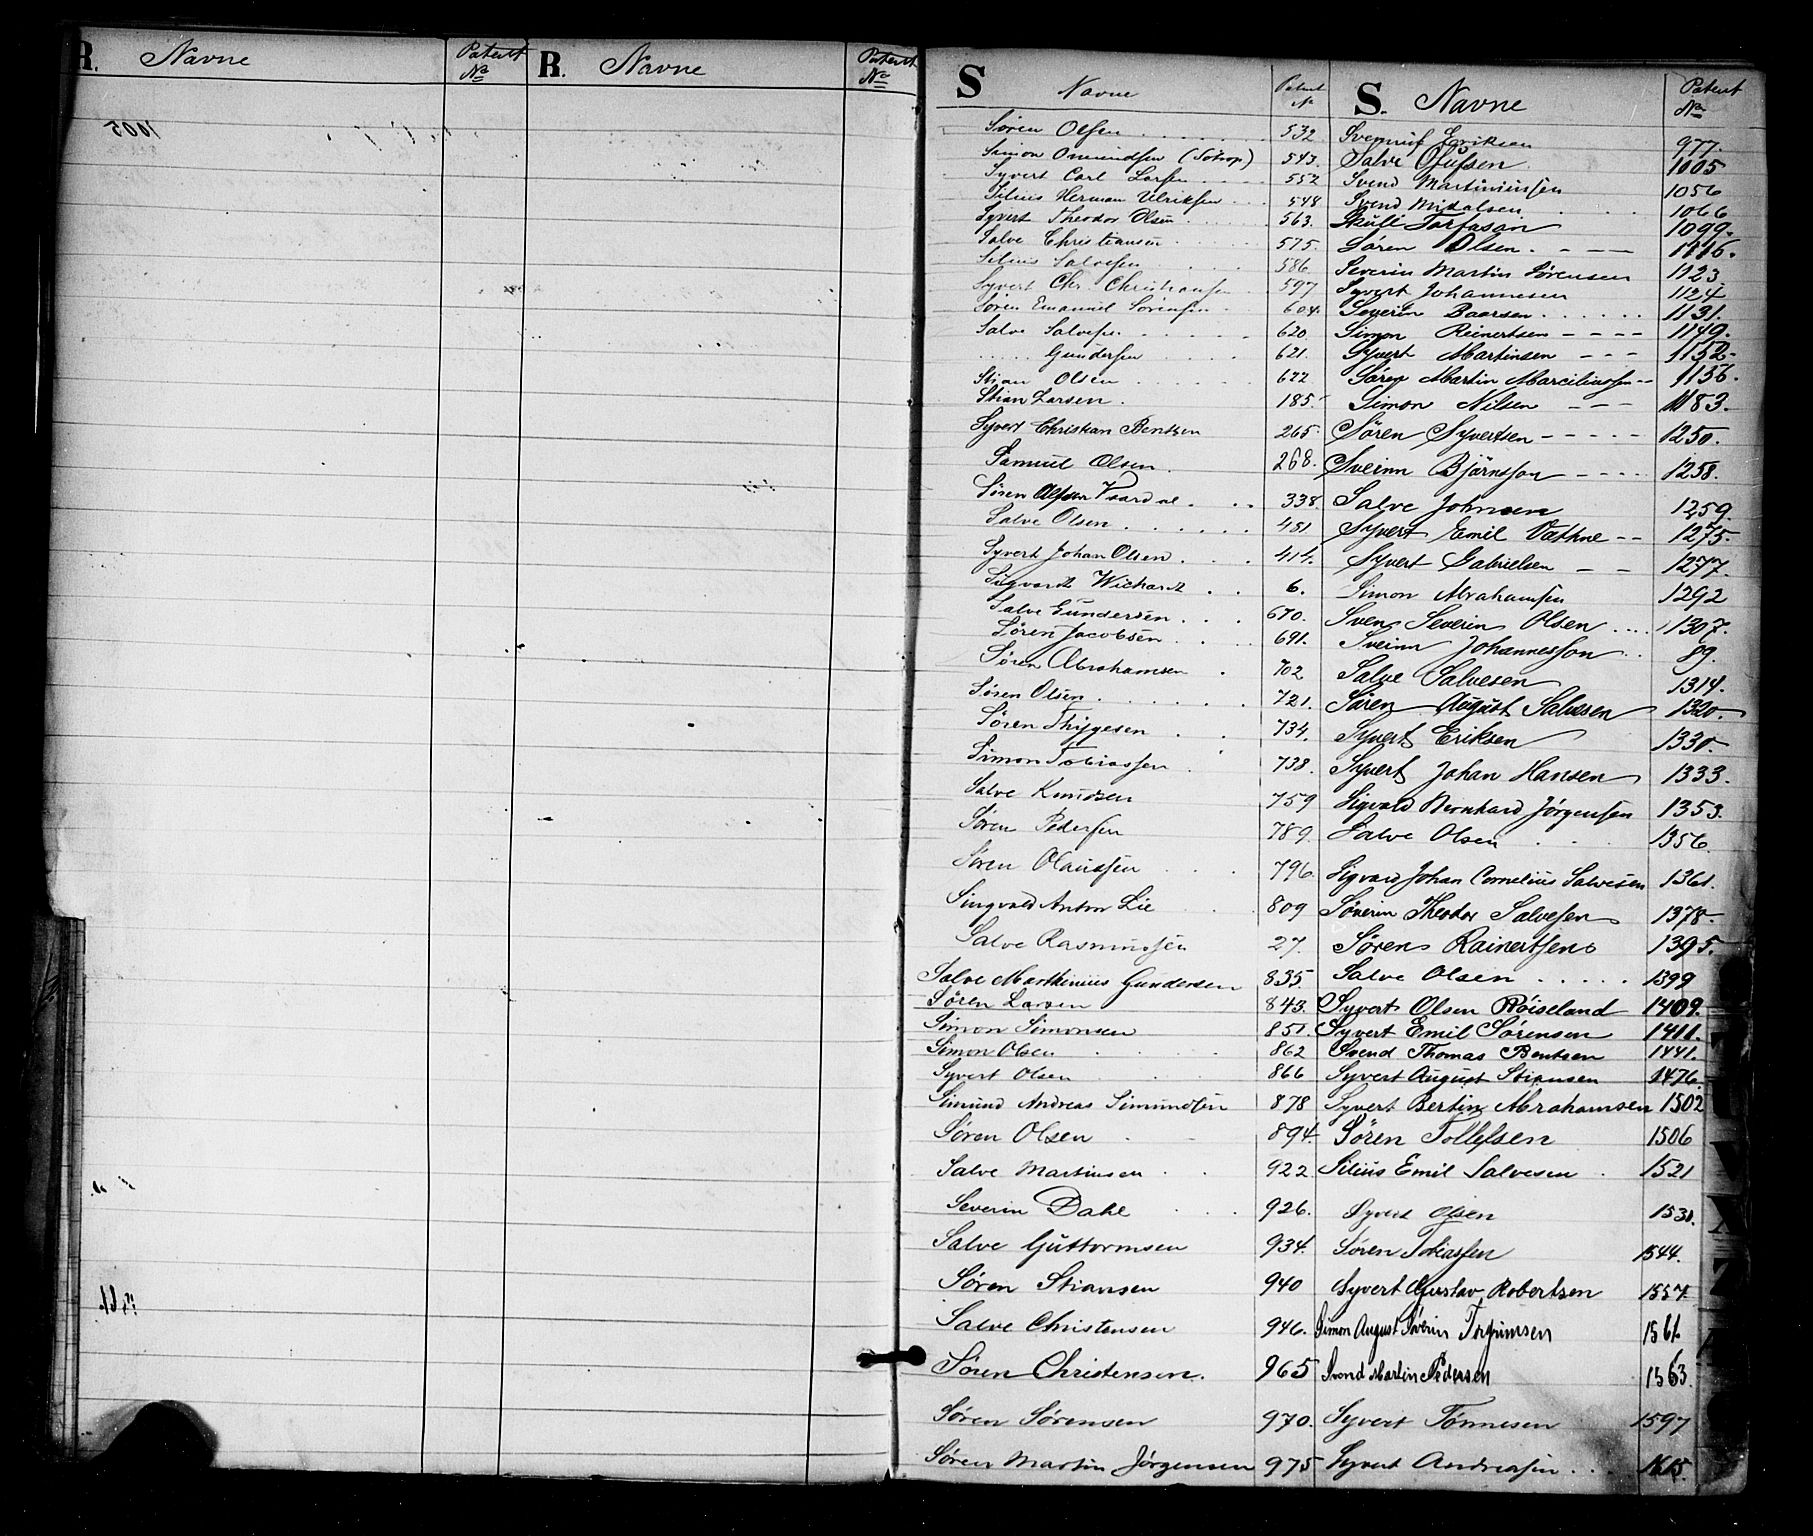 R. Navne Patent No
R. Navne Patent No
S Navne Patent N
Søren Olsen 532
Simon Omundsen 543.
Syvert Carl Larsen 552
Silius Herman Ulriksen 548
Syvert Theodor Olsen 563.
Salve Christiansen 575.
Silius Salvesen 586
Syvert Chr. Christiansen 597
Søren Emanuel Sørensen 604.
Salve Salvesen 620
..... Gundersen 621.
Stian Olsen 622
Stian Larsen. 185.
Syvert Christian Bentsen 265.
Samuel Olsen. 268.
Søren Olsen Vaardal 338.
Salve Olsen 401
Syvert Johan Olsen 414.
Sigvardt Wichardt 6.
Salve Gundersen 670.
Søren Jacobsen 691.
Søren Abrahamsen 702
Søren Olsen 721.
Søren Thygesen 734.
Simon Tobiassen 738.
Salve Knudsen 759
Søren Pedersen 789.
Søren Olaussen 796.
Singvald Anton Lie 809
Salve Rasmussen 27.
Salve Marthinius Gundersen 835.
Søren Larsen 843.
Simon Simonsen 851.
Simon Olsen 862
Syvert Olsen 866
Simund Andreas Simundsen 878
Søren Olsen 894
Salve Martinsen 922
Severin Dahl 926.
Salve Guttormsen 934.
Søren Stiansen 940
Salve Christensen 946.
Søren Christensen. 965
Søren Sørensen 970.
Søren Martin Jørgensen 975
S. Navne Patent No
Eriksen 977.
Salve Olufsen 1005
Svend Martiniussen 1056
Svend Mikalsen 1066
Skuli Torfason 1099.
Søren Olsen. 1116.
Severin Martin Sørensen 1123
Syvert Johannesen 1124
Severin Baarsen 1131.
Simon Reinertsen 1149.
Syvert Martinsen 1152
Søren Martin Marciliussen 1156.
Simon Nilsen 1183.
Søren Syvertsen 1250.
Sveinn Björnsson 1258.
Salve Johnsen 1259.
Syvert Emil Væthne 1275.
Syvert Gabrielsen 1277.
Simon Abrahamsen 1292
Sven Severin Olsen 1307.
Sveinn Johannesson 89.
Salve Salvesen 1314.
Søren August Salvesen 1320.
Syvert Eriksen 1330.
Syvert Johan Hansen 1333.
Sigvald Bernhard Jørgensen 1353.
Salve Olsen 1356.
Sigvard Johan Cornelius Salvesen 1361.
Søverin Theodor Salvesen 1378.
Søren Rainertsen 1395.
Salve Olsen 1399
Syvert Olsen Röiseland 1409.
Syvert Emil Sørensen 1411.
Svend Thomas Bentsen 1441.
Syvert August Stiansen 1476.
Syvert Bertin Abrahamsen 1502
Søren Tollefsen 1506
Silius Emil Salvesen 1521
Syvert Olsen 1531.
Søren Tobiassen 1544.
Syvert Gustav Robertsen 1557.
Simon August Søverin Torgrimsen 1561.
Svend Martin Pedersen 1563.
Syvert Tønnesen 1597
Syvert Andreasen 1615.